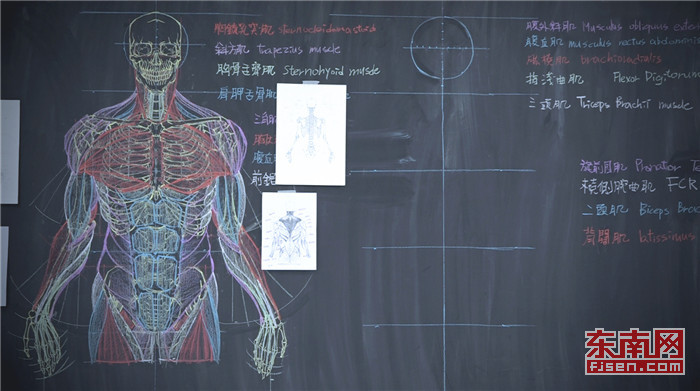 胸鎖乳突肌 sternocleidomastoid
斜方肌 trapezius muscle
胸骨舌骨肌 Sternohyoid muscle
肩胛舌骨肌
三角肌
前鋸
腹外斜肌 Musculus obliquus
腹直肌 musculus rectus abdominis
肱橈肌 brachioradialis
指淺曲肌 Flexor Digitorum
三頭肌 Triceps Brachii muscle
旋前圓肌 Pronator Te
橈側腕曲肌 FCR
二頭肌 Biceps Brac
背闊肌 latissimus
东南网
fjsen.com